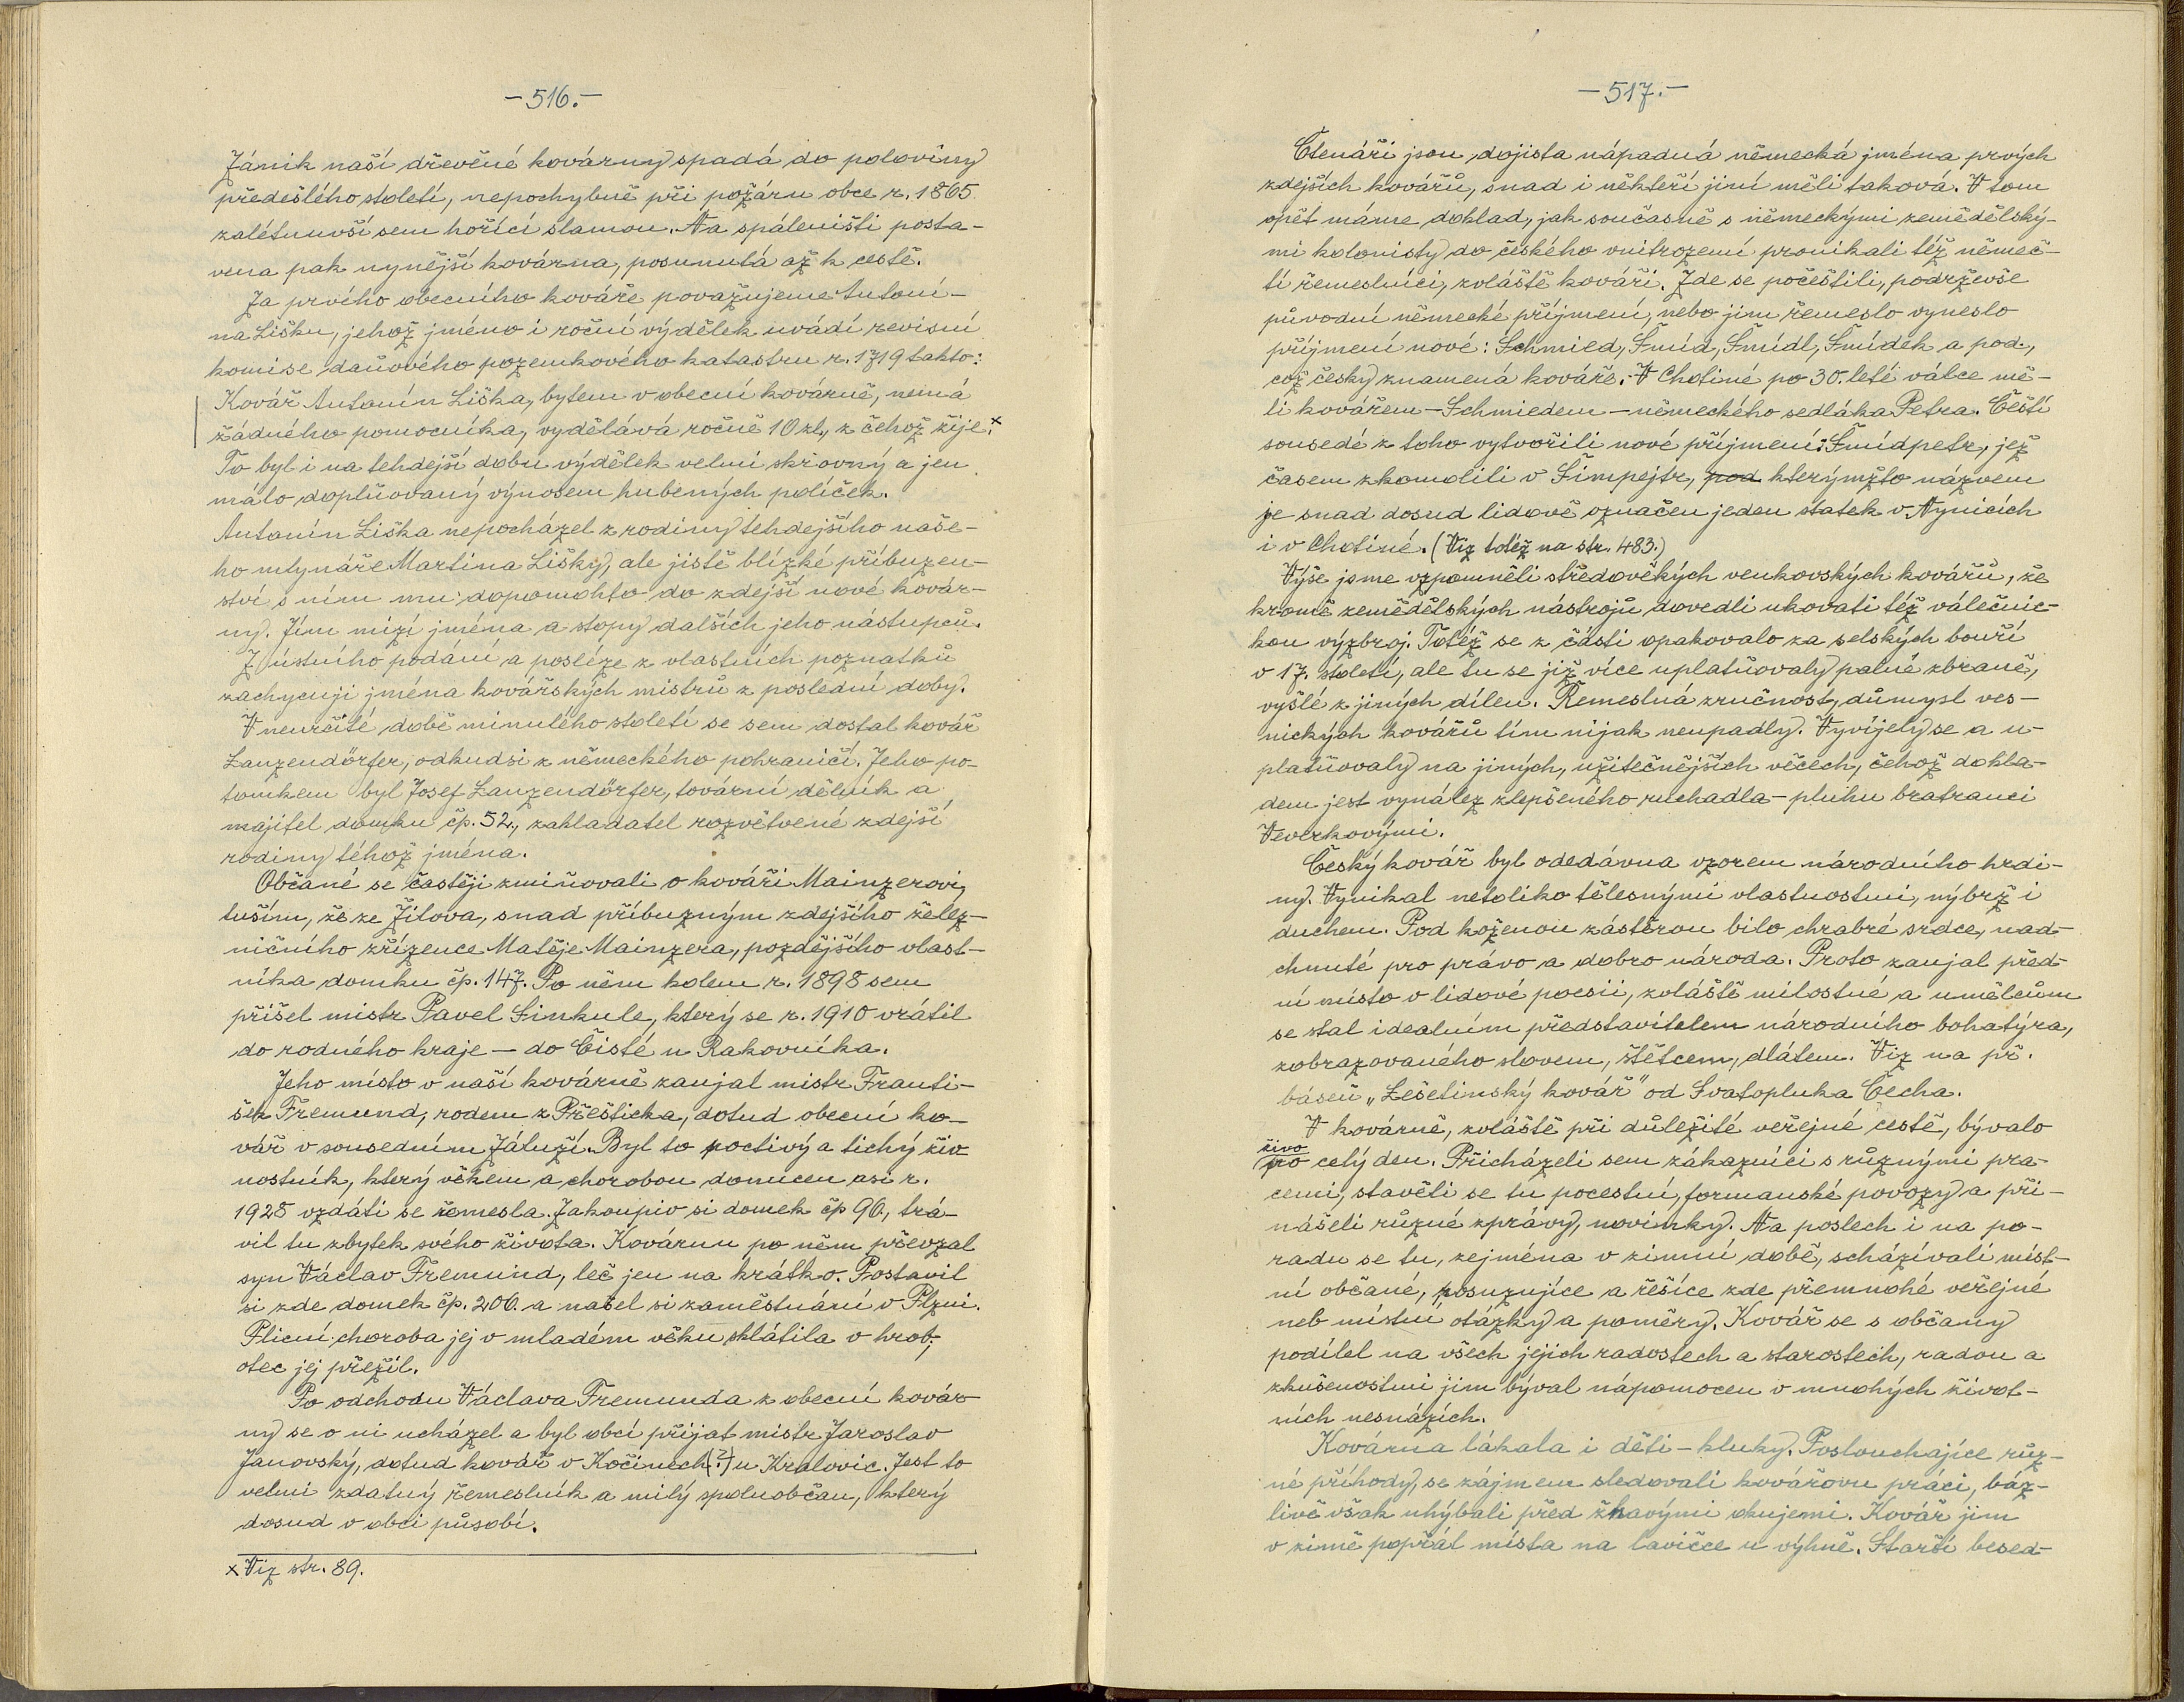 -516.-
Zánik naší dřevěné kovárny spadá do poloviny
předešlého století, nepochybně při požáru obce r. 1865
zalétnuvší sem hořící slamou. Na spáleništi posta-
vena pak nynější kovárna, posunutá až k cestě.
Za prvího obecního kováře považujeme Antoní-
na Lišku, jehož jméno i roční výdělek uvádí revisní
komise daňového pozemkového katastru r. 1719 takto:
Kovář Antonín Liška, bytem v obecní kovárně, nemá
žádného pomocníka, vydělává ročně 10 zl., z čehož žije.x
To byl i na tehdejší dobu výdělek velmi skrovný a jen
málo doplňovaný výnosem hubených políček.
Antonín Liška nepocházel z rodiny téhdejšího naše-
ho mlynáře Martina Lišky, ale jistě blízké příbuzen-
ství s ním mu dopomohlo do zdejší nové kovár-
ny. Jím mizí jména a stopy dalších jeho nástupců.
Z ústního podání a posléze z vlastních poznatků
zachycuji jména kovářských mistrů z poslední doby.
V neurčité době minulého století se sem dostal kovář
Lanzendörfer, odkudsi z německého pohraničí. Jeho po-
tomkem byl Josef Lanzendörfer, tovární dělník a
majitel domku čp. 52., zakladatel rozvětvené zdejší
rodiny téhož jména.
Občané se častěji zmiňovali o kováři Mainzerovi,
tuším, že ze Žilova, snad příbuzným zdejšího želez-
ničního zřízence Matěje Mainzera, pozdějšího vlast-
níka domku čp. 147. Po něm kolem r. 1898 sem
přišel mistr Pavel Sinkule, který se r. 1910 vrátil
do rodného kraje - do Čisté u Rakovníka.
Jeho místo v naší kovárně zaujal mistr Franti-
šek Fremund, rodem z Přešticka, dotud obecní ko-
vář v sousedním Záluží. Byl to poctivý a tichý živ
nostník, který věkem a chorobou donucen asi r.
1928 vzdáti se řemesla. Zakoupiv si domek čp 96., trá-
vil tu zbytek svého života. Kovárnu po něm převzal
syn Václav Fremund, leč jen na krátko. Postavil
si zde domek čp. 206. a našel si zaměstnání v Plzni.
Plicní choroba jej v mladém věku sklátila v hrob,
otec jej přežil.
Po odchodu Václava Fremunda z obecní kovár
ny se o ni ucházel a byl obcí přijat mistr Jaroslav
Janovský, dotud kovář v Kočínech (?) u Kralovic. Jest to
velmi zdatný řemeslník a milý spoluobčan, který
dosud v obci působí.
x Viz str. 89.
-517.-
Čtenáři jsou dojista nápadná německá jména prvých
zdejších kovářů, snad i někteří jiní měli taková. V tom
opět máme doklad, jak současně s německými zemědělský-
mi kolonisty do českého vnitrozemí pronikali též němeč-
tí řemeslníci, zvláště kováři. Zde se počeštili, podrževše
původní německé příjmení, nebo jim řemeslo vyneslo
příjmení nové: Schmied, Šmíd, Šmídl, Šmídek a pod.,
což česky znamená kováře. V Chotiné po 30.leté válce mě-
li kovářem - Schmiedem - německého sedláka Petra. Čeští
sousedé z toho vytvořili nové příjmení: Šmídpetr, jež
časem zkomolili v Šimpejtr, pod kterýmžto názvem
je snad dosud lidově označen jeden statek v Nynicích
i v Chotiné. (Viz totéž na str. 483.)
Výše jsme vzpomněli středověkých venkovských kovářů, že
kromě zemědělských nástrojů dovedli ukovati též válečnic-
kou výzbroj. Totéž se z části opakovalo za selských bouří
v 17. století, ale tu se již více uplatňovaly palné zbraně,
vyšlé z jiných dílen. Řemeslná zručnost, důmysl ves-
nických kovářů tím nijak neupadly. Vyvíjely se a u-
platňovaly na jiných, užitečnějších věcech, čehož dokla-
dem jest vynález zlepšeného ruchadla - pluhu bratranci
Veverkovými.
Český kovář byl odedávna vzorem národního hrdi-
ny. Vynikal netoliko tělesnými vlastnostmi, nýbrž i
duchem. Pod koženou zástěrou bilo chrabré srdce, nad-
chnuté pro právo a dobro národa. Proto zaujal před-
ní místo v lidové poesii, zvláště milostné a umělcům
se stal idealním představitelem národního bohatýra,
zobrazovaného slovem, štětcem, dlátem. Viz na př.
báseň „Lešetinský kovář" od Svatopluka Čecha.
V kovárně, zvláště při důležité veřejné cestě, bývalo
živo
pro celý den. Přicházeli sem zákazníci s různými pra-
cemi, stavěli se tu pocestní, formanské povozy a při-
nášeli různé zprávy, novinky. Na poslech i na po-
radu se tu, zejména v zimní době, scházívali míst-
ní občané, posuzujíce a řešíce zde přemnohé veřejné
neb místní otázky a poměry. Kovář se s občany
podílel na všech jejich radostech a starostech, radou a
zkušenostmi jim býval nápomocen v mnohých život-
ních nesnázích.
Kovárna lákala i děti - kluky. Poslouchajíce růz-
né příhody, se zájmem sledovali kovářovu práci, báz-
livě však uhýbali před žhavými okujemi. Kovář jim
v zimě popřál místa na lavičce u výhně. Starší besed-